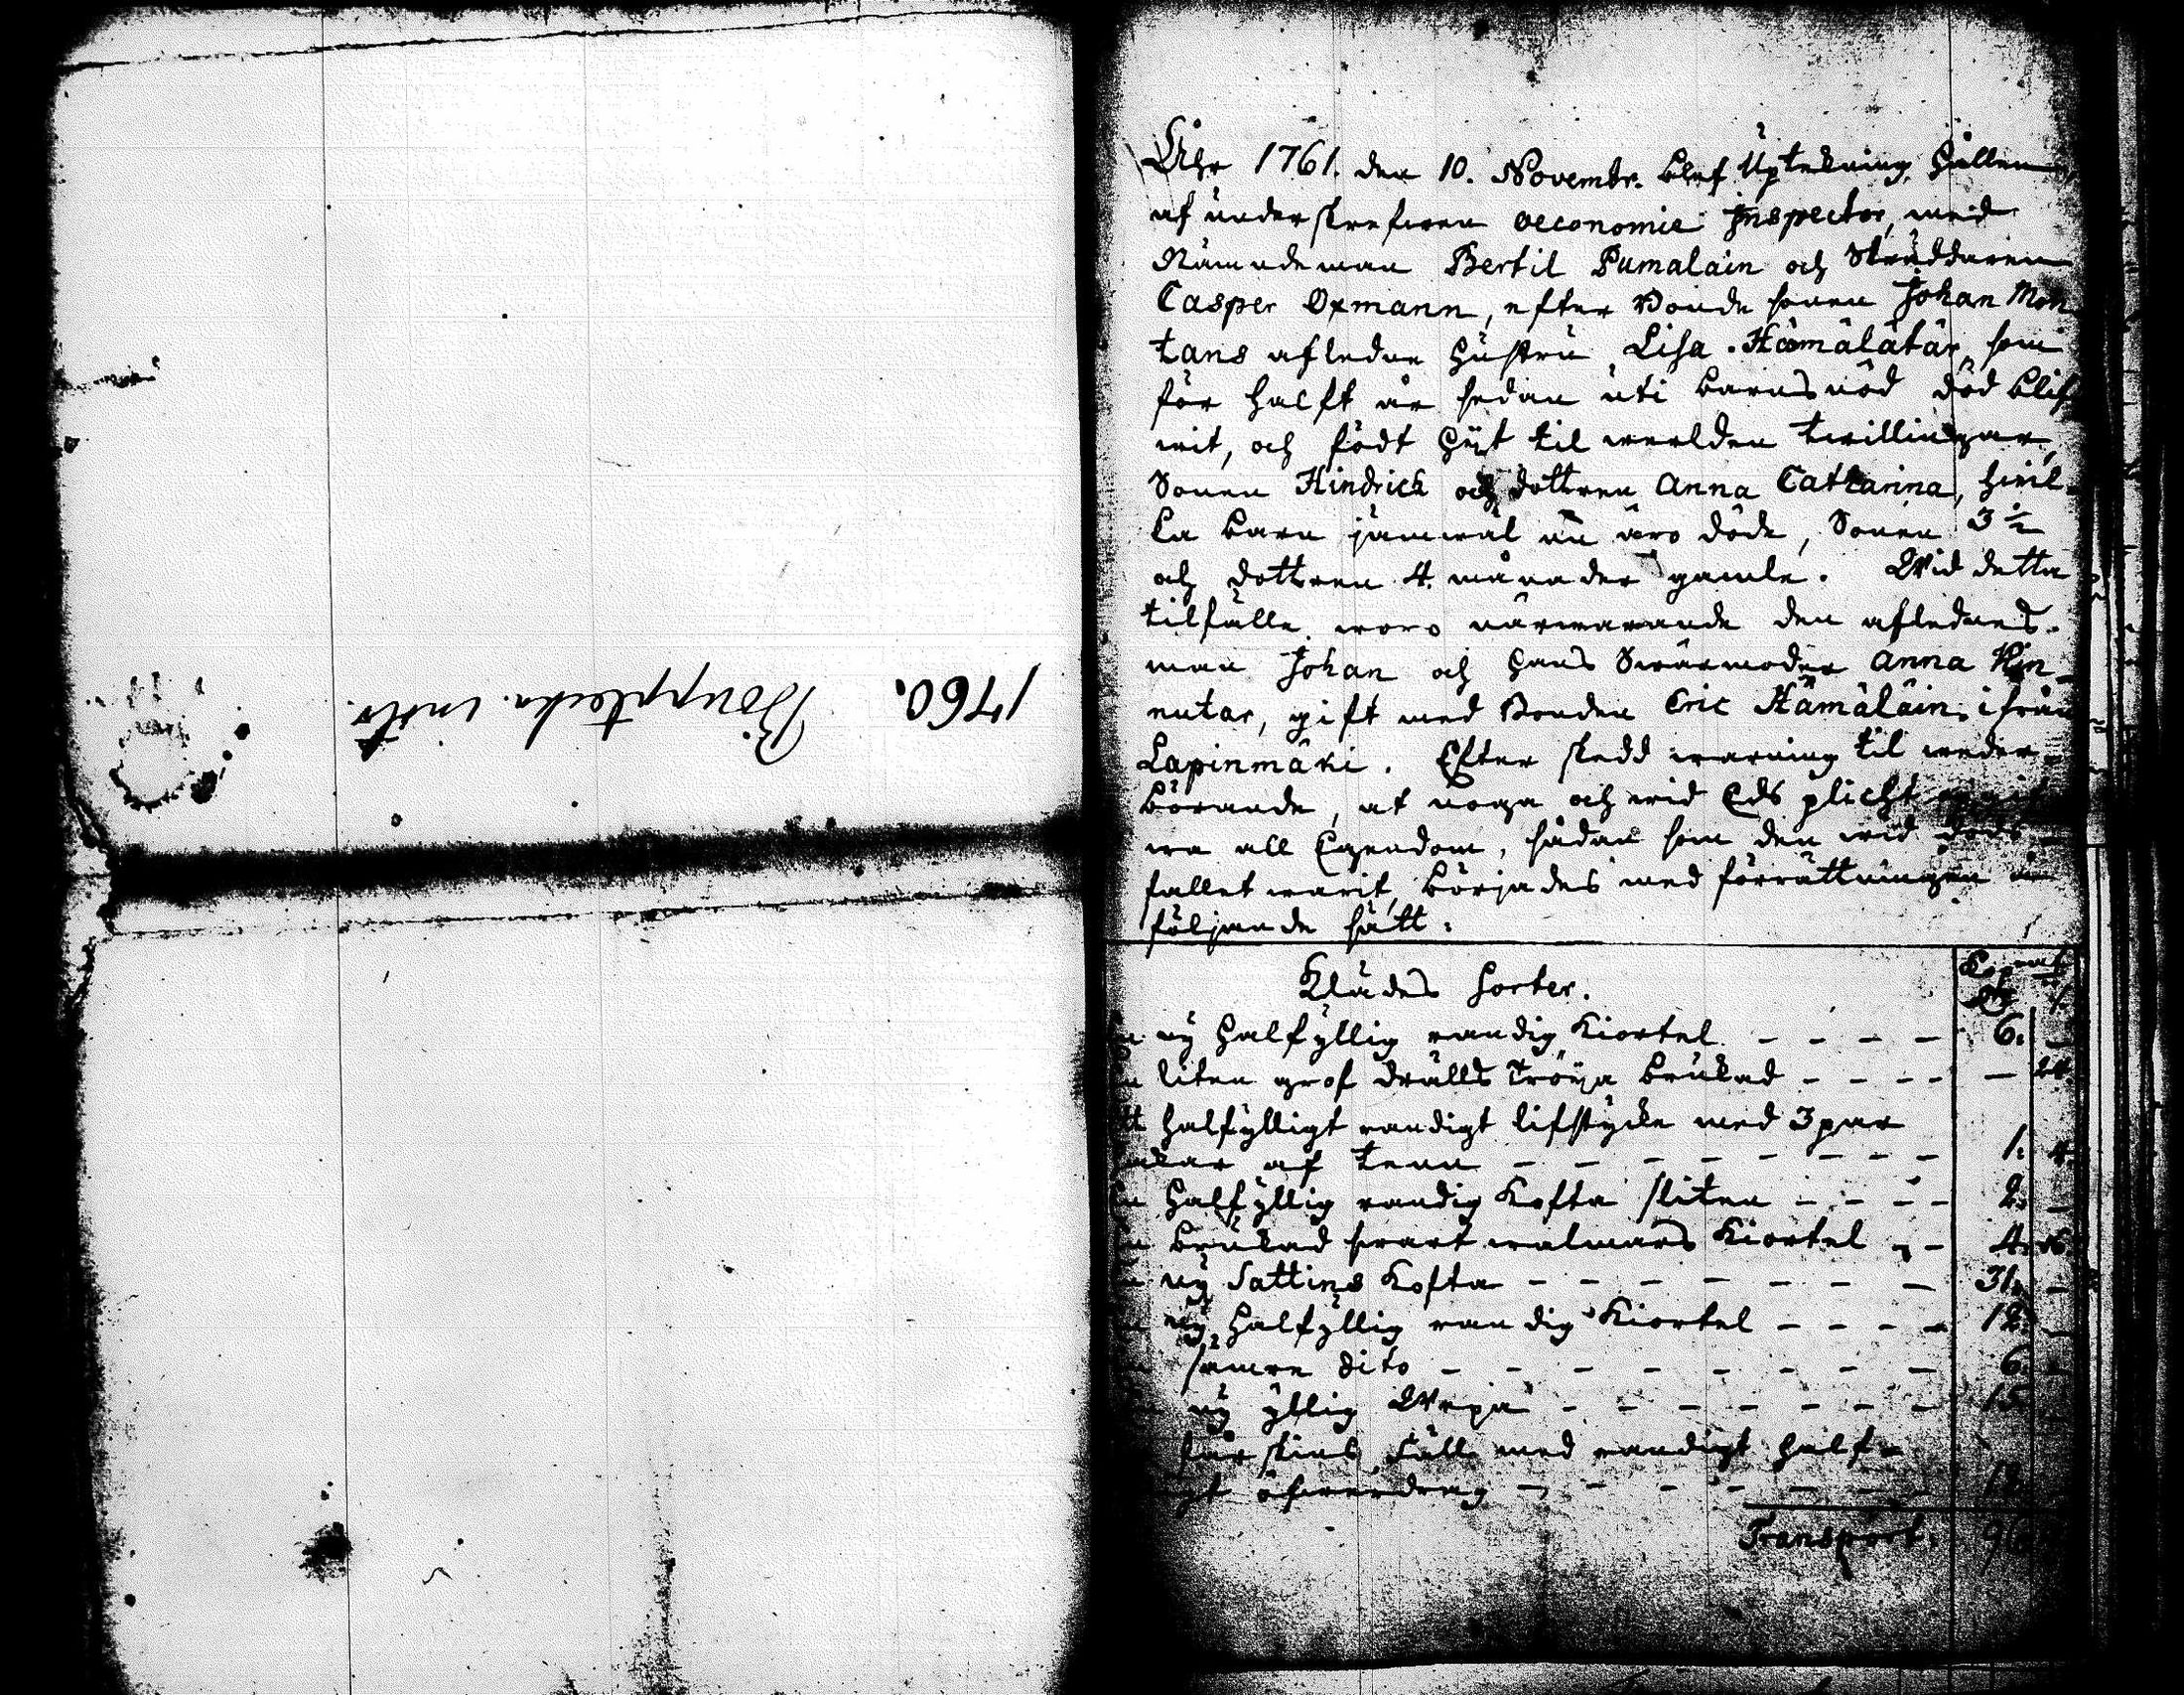 1760. Boupptekn. instr.
Åhr 1761. den 10. Novembr. blef Uptekning hållen
af underskrefwen oeconomie Inspector, med
Nämndeman Bertil Pumalain och Skräddaren
Casper Oxmann, efter Bonde sonen Johan Mon
tans afledne hustru Lisa Hämälätär, som
för halft år sedan uti barnsnöd död blif
wit, och födt hyt til werlden twillingar,
Sonen Hindrich och dottren Anna Catharina, hwil-
ka barn jämwäl nu äro döde, Sonen 3 ½
och dottren 4. månader gamle. Wid detta
tilfälle woro närwarande den aflednes
man Johan och hans Swärmoder Anna Kin
nutar, gift med Bonden Eric Hämäläin ifrån
Lapinmäki. Efter skedd warning til weder-
börande, at noga och wid Eds plicht
wa all Egendom, sådan som den wid döds-
fallet warit, börjades med förrättningen
följande sätt:
Klädes sorter.
ny halfyllig randig Kiortel - - - - 6. -
liten grof drälls Tröya brukad - - - - - 24.
halfylligt randigt lifstycke med 3 par
akar af tenn - - - - - - - 1.
halfyllig randig Kofta sliten - - - - 2. -
brukad swart walmars Kiortel - - 4. 16.
ny Sattins Kofta - - - - - - - 31. -
ny halfyllig randig Kiortel - - - - 12. -
sämre dito - - - - - - - - 6 -
ny yllig Wepa - - - - - - - 15
fårskins fäll med randigt half-
gt öfwerdrag - - - - - -
Transport. 96